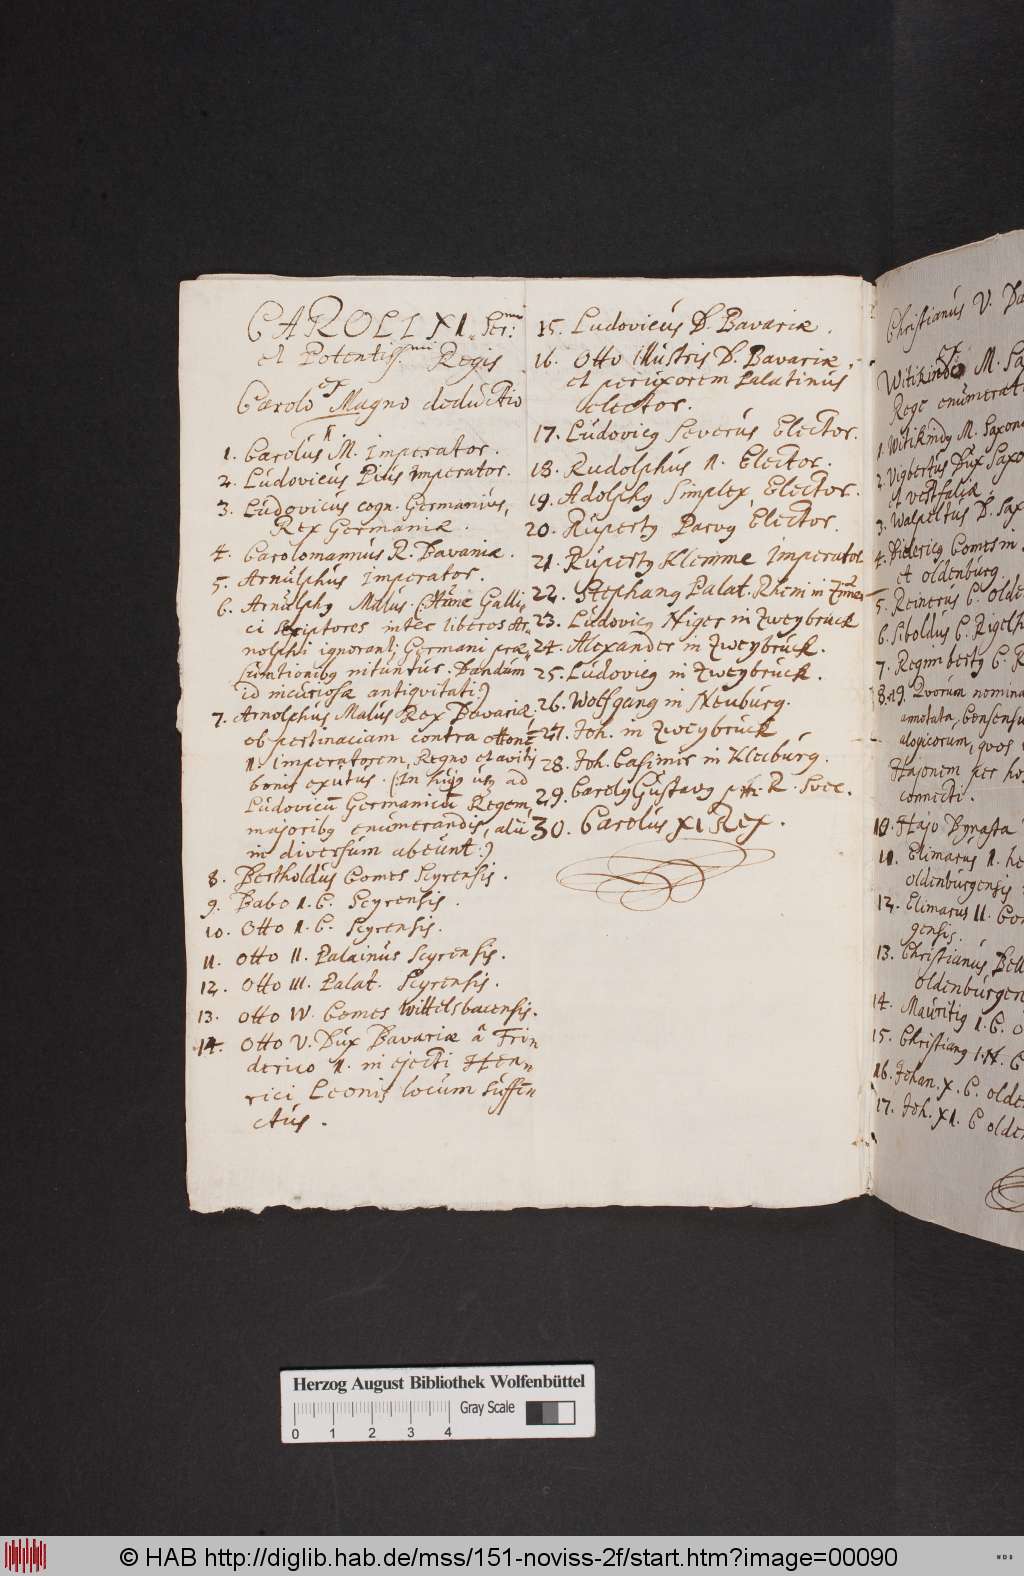 CAROLI XI. Ser:mi
et Potentiss.mi Regis
ex
Carolo Magno deductio
1. Carolus M. Imperator.
2. Ludovicus Pius Imperator.
3. Ludovicus cogn. Germanius,
Rex Germaniæ.
4. Carolomannus R. Bavariæ.
5. Arnulphus Imperator.
6. Arnulphg Malus. (Hunc Galli-
ci scriptores inter liberos Ar-
nolphi ignorant; Germani præ-
sumtionibg nituntur. Dandum
id incuriosæ antiqvitati:)
7. Arnolphus Malus Rex Bavariæ
ob pertinaciam contra Ottonē
I. Imperatorem, Regno et avitis
bonis exutus. (In hujg usq ad
Ludovicū Germanicū Regem
majoribg enumerandis, alii
in diversum abeunt:)
8. Bertholdus Comes Scyrensis.
9. Babo I. C. Scyrensis.
10. Otto I. C. Scyrensis.
11. Otto II. Palainus Scyrensis.
12. Otto III. Palat. Scyrensis.
13. Otto IV. Comes Wittelsbacensis.
14. Otto V. Dux Bavariæ â Frin
derico I. in ejecti Hen-
rici Leonis locum suffe-
ctus.
15. Ludovicus D. Bavariæ.
16. Otto Illustris D. Bavariæ,
et per uxorem Palatinus
Elector.
17. Ludovicg Severus Elector.
18. Rudolphus I. Elector.
19. Adolphg Simplex, Elector.
20. Rupertg Parvg Elector.
21. Rupertg Klemme Imperator
22. Stephang Palat. Rheni in
23. Ludovicg Niger in Zweybruck
24. Alexander in Zweybruck.
25. Ludovicg in Zweybruck.
26. Wolfgang in Neuburg.
27. Joh. in Zweybruck
28. Joh. Casimir in Kleeburg.
29. Carolg Gustavg R. Svec.
30. Carolus XI Rex.
Christianus V. Da
ex
Witikindo M. Sa
Rege enumerat
1. Witikindg M. Saxon
2. Vigbertus Dux Saxo
et Vestfaliæ.
3. Walpertus D. Sax
4. Didericg Comes in
et Oldenburg
5. Reinerus C. Olde
6. Siboldus C. Rigelsh
7. Regimbertg C. R
8. 9. Qvorum nomina
annotata, Consensu
alogicorum, qvos
Hajonem per ho
connecti.
10. Hajo Dynasta
11. Elimarus I. he
Oldenburgensis
12. Elimarus II. Co
gensis.
13. Christianus Bell
Oldenburgen
14. Mauritig I. C. O
15. Christiang C
16. Johan. X. C. Olde
17. Joh. XI. C Olden
Herzog August Bibliothek Wolfenbüttel
Gray Scale
0 1 2 3 4
© HAB http://diglib.hab.de/mss/151-noviss-2f/start.htm?image=00090